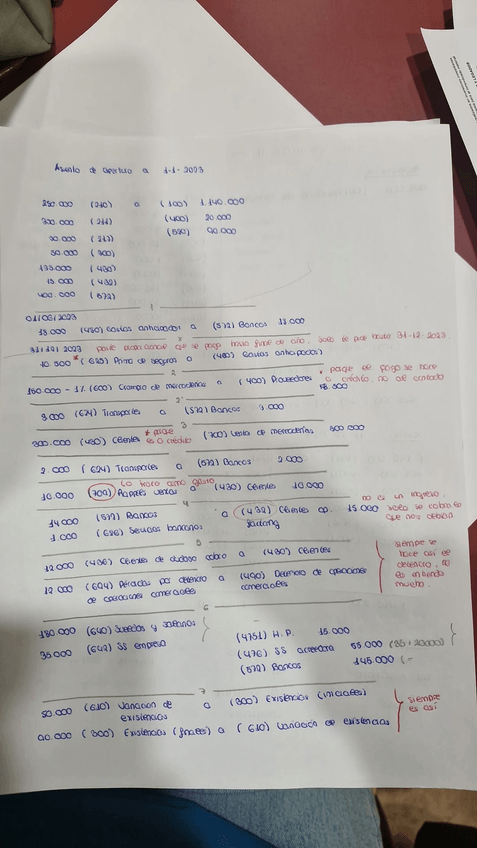 Asiento de apertura a 1-1-2023
250.000 (210) a (100) 1.140.000
300.000 (211) (400) 20.000
(213) (520) 90.000
50.000 (300)
(430)
15.000 (432)
400.000 (572)
1
01/06/2023
18.000 (480) Gastos anticipados a (572) Bancos 18.000
31/12/2023 que se pago hasta final de año. Solo es por hasta 31-12-2023
10.500 * (625) Prima de seguros a (480) Gastos anticipados
2
150.000 - 1% (600) Compra de mercaderías a (400) Proveedores * porque el pago se hace
a crédito, no al contado
2'
3.000 (624) Transportes a (572) Bancos 3.000
3
300.000 (430) Clientes * porque es a crédito (700) Venta de mercaderías 300.000
2.000 (624) Transportes a (572) Bancos 2.000
Lo hago como gasto
10.000 (709) ventas a (430) Clientes 10.000
4
14.000 (572) Bancos a (432) Clientes op. factoring 15.000
1.000 (626) Servicios bancarios
no es un ingreso, solo se cobra lo que nos debían
5
12.000 (436) Clientes de dudoso cobro a (430) Clientes
12.000 (694) Pérdidas por deterioro a (490) Deterioro de operaciones
de operaciones comerciales comerciales
siempre se
hace así el
deterioro, no
es
mucho.
6
180.000 (640) Sueldos y salarios
35.000 (642) SS empresa
(4751) H.P. 15.000
(476) SS acreedora 55.000 (35+20000)
(572) Bancos 145.000
7
50.000 (610) Variación de a (300) Existencias (iniciales)
existencias
90.000 (300) Existencias (finales) a (610) Variación de existencias
siempre
es así